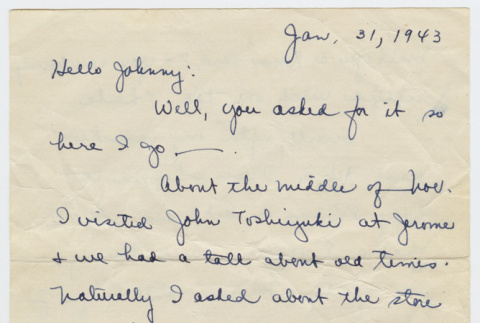 Jan. 31, 1943
Hello Johnny:
Well, you asked for it so
here I go —.
About the middle of Nov.
I visited John Toshiyuki at Jerome
& we had a talk about old times.
Naturally I asked about the store